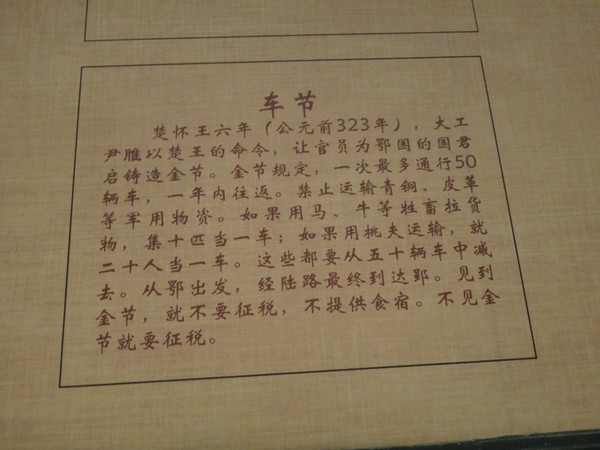 车节
楚怀王六年（公元前323年），大工
尹脽以楚王的命令，让官员为鄂国的国君
启铸造金节。金节规定，一次最多通行50
辆车，一年内往返。禁止运输青铜、皮革
等军用物资。如果用马、牛等牲畜拉货
物，集十匹当一车；如果用挑夫运输，就
二十人当一车。这些都要从五十辆车中减
去。从鄂出发，经陆路最终到达郢。见到
金节，就不要征税，不提供食宿。不见金
节就要征税。